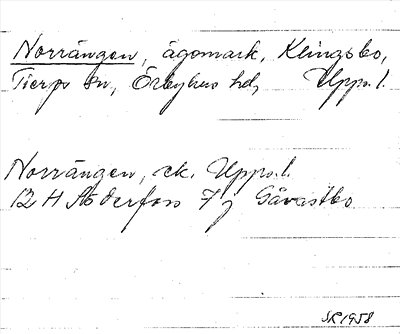 Norrängen, ägomark, Klingsbo,
Tierps sn, Örbyhus hd, Upps. l.
Norrängen, ek. Upps. l.
12 H Söderfors 7 j Gåvastbo
SK 1958